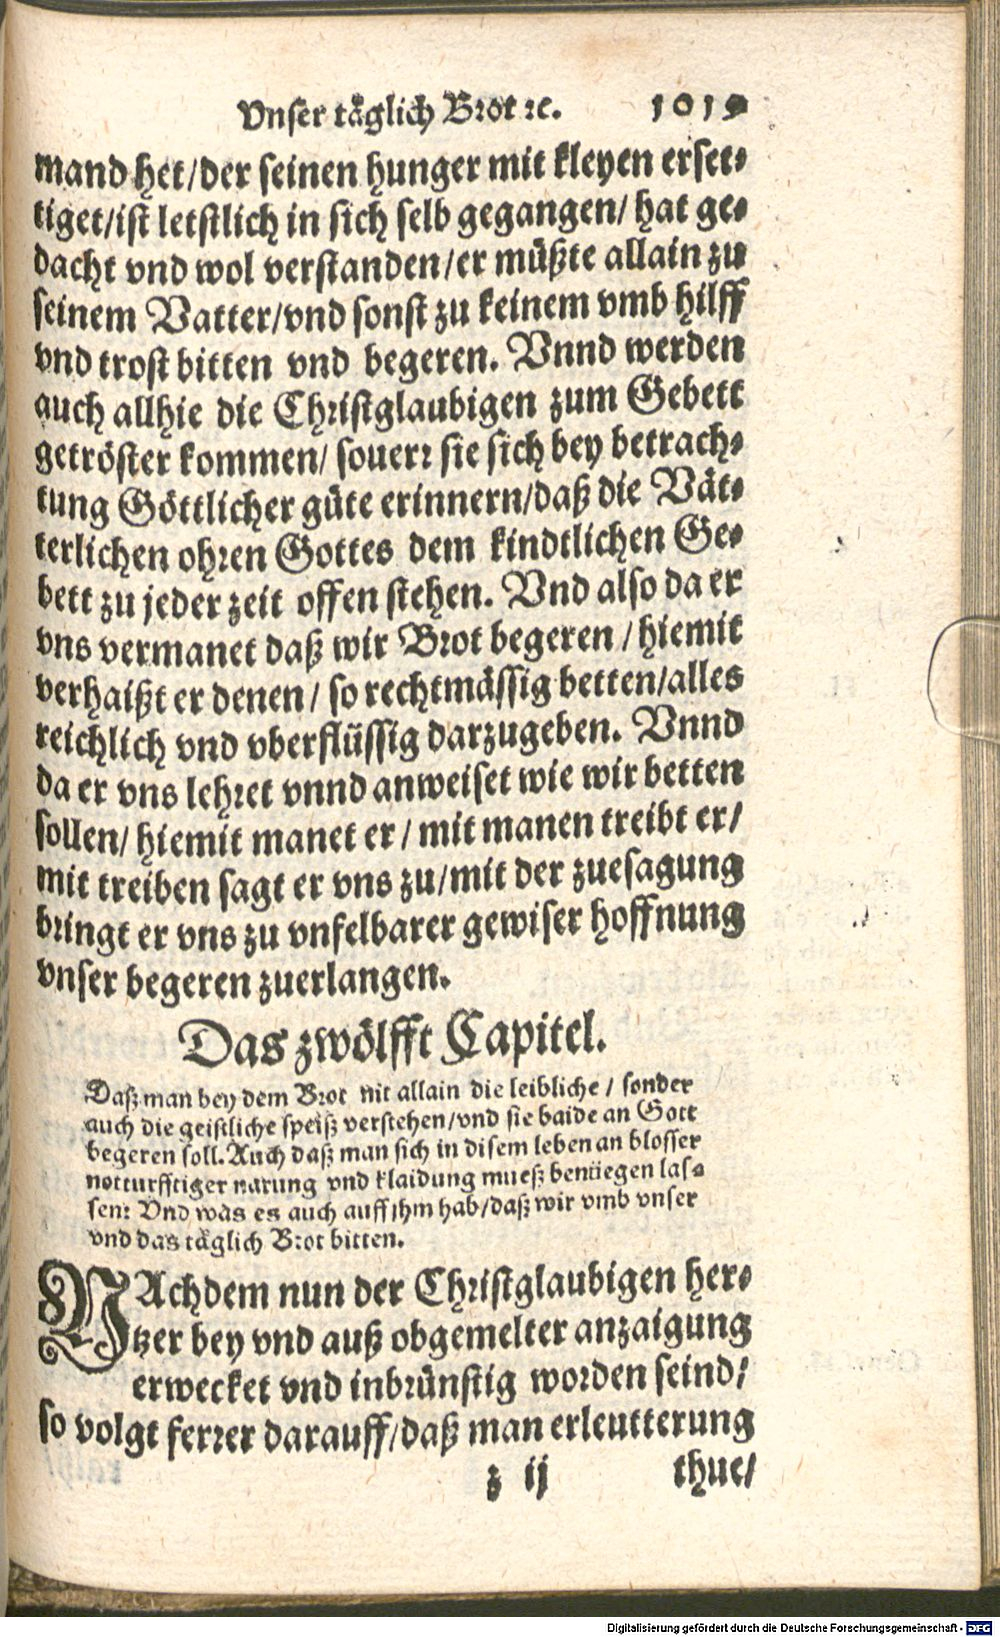 Vnser täglich Brot ꝛc. 1019
mand het/der seinen hunger mit kleyen erset-
tiget/ist letstlich in sich selb gegangen/ hat ge-
dacht vnd wol verstanden/er müßte allain zu
seinem Vatter/vnd sonst zu keinem vmb hilff
vnd trost bitten vnd begeren. Vnnd werden
auch allhie die Christglaubigen zum Gebett
getröster kommen/ souerr sie sich bey betrach-
tung Göttlicher güte erinnern/daß die Vät-
terlichen ohren Gottes dem kindtlichen Ge-
bett zu jeder zeit offen stehen. Vnd also da er
vns vermanet daß wir Brot begeren / hiemit
verhaißt er denen/ so rechtmässig betten/alles
reichlich vnd vberflüssig darzugeben. Vnnd
da er vns lehret vnnd anweiset wie wir betten
sollen/ hiemit manet er / mit manen treibt er/
mit treiben sagt er vns zu/mit der zuesagung
bringt er vns zu vnfelbarer gewiser hoffnung
vnser begeren zuerlangen.
Das zwölfft Capitel.
Daß man bey dem Brot nit allain die leibliche / sonder
auch die geistliche speiß verstehen/vnd sie baide an Gott
begeren soll. Auch daß man sich in disem leben an blosser
notturfftiger narung vnd klaidung mueß benüegen las-
sen: Vnd was es auch auff ihm hab/daß wir vmb vnser
vnd das täglich Brot bitten.
NAchdem nun der Christglaubigen her-
tzer bey vnd auß obgemelter anzaigung
erwecket vnd inbrünstig worden seind/
so volgt ferrer darauff/daß man erleutterung
z ij thue/
Digitalisierung gefördert durch die Deutsche Forschungsgemeinschaft - DFG